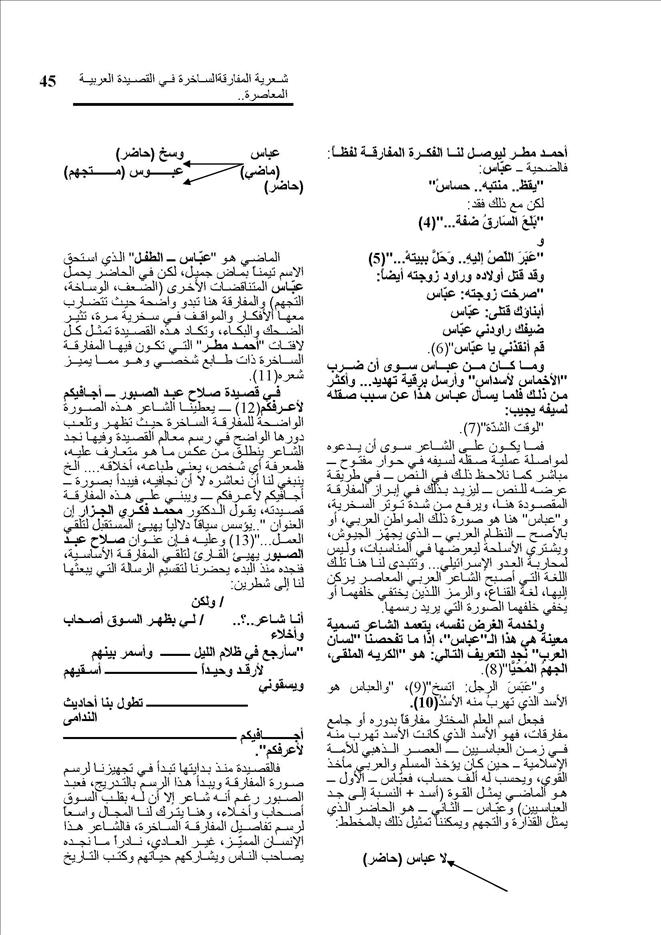 شعرية المفارقة الساخرة في القصيدة العربية
المعاصرة..
45
أحمد مطر ليوصل لنا الفكرة المفارقة لفظاً:
فالضحية ــ عبّاس:
"يقظ.. منتبه.. حساسُ"
لكن مع ذلك فقد:
"بَلغَ السَارقُ ضفة..."(4)
و
"عَبَرَ اللّصُ إليهِ.. وَحَلَّ ببيتهْ..."(5)
وقد قتل أولاده وراود زوجته أيضاً:
"صرخت زوجته: عبّاس
أبناؤك قتلى: عبّاس
ضيفك راودني عبّاس
قم أنقذني يا عبّاس"(6).
وما كان من عباس سوى أن ضرب
"الأخماس لأسداس" وأرسل برقية تهديد... وأكثر
من ذلك فلما يسأل عباس هذا عن سبب صقله
لسيفه يجيب:
"لوقت الشدّة"(7).
فما يكون على الشاعر سوى أن يدعوه
لمواصلة عملية صقله لسيفه في حوار مفتوح ــ
مباشر كما نلاحظ ذلك في النص ــ في طريقة
عرضه للنص ــ ليزيد بذلك في إبراز المفارقة
المقصودة هنا، ويرفع من شدة توتر السخرية،
و"عباس" هنا هو صورة ذلك المواطن العربي، أو
بالأصح ــ النظام العربي ــ الذي يجهّز الجيوش،
ويشتري الأسلحة ليعرضها في المناسبات، وليس
لمحاربة العدو الإسرائيلي... وتتبدى لنا هنا تلك
اللغة التي أصبح الشاعر العربي المعاصر يركن
إليها، لغة القناع، والرمز اللذين يختفي خلفهما أو
يخفي خلفهما الصورة التي يريد رسمها.
ولخدمة الغرض نفسه، يتعمد الشاعر تسمية
معينة هي هذا الـ"عباس"، إذا ما تفحصنا "لسان
العرب" نجد التعريف التالي: هو "الكريه الملقى،
الجهمُ المُحَيَّا"(8).
و"عَبَسَ الرجل: اتسخ"(9)، "والعباس هو
الأسد الذي تهربُ منه الأسْدُ(10).
فجعل اسم العلم المختار مفارقاً بدوره أو جامع
مفارقات، فهو الأسد الذي كانت الأسد تهرب منه
في زمن العباسيين ــ العصر الذهبي للأمة
الإسلامية ــ حين كان يؤخذ المسلم والعربي مأخذ
القوي، ويحسب له ألف حساب، فعبّاس ــ الأول ــ
هو الماضي يمثل القوة (أسد + النسبة إلى جد
العباسيين) وعبّاس ــ الثاني ــ هو الحاضر الذي
يمثل القذارة والتجهم ويمكننا تمثيل ذلك بالمخطط:
لا عباس (حاضر)
عباس وسخ (حاضر)
(ماضي) عبــوس (متجهم)
(حاضر)
الماضي هو "عبّاس ــ الطفل" الذي استحق
الاسم تيمناً بماض جميل، لكن في الحاضر يحمل
عبّاس المتناقضات الأخرى (الضعف، الوساخة،
التجهم) والمفارقة هنا تبدو واضحة حيث تتضارب
معها الأفكار والمواقف في سخرية مرة، تثير
الضحك والبكاء، وتكاد هذه القصيدة تمثل كل
لافتات "أحمد مطر" التي تكون فيها المفارقة
الساخرة ذات طابع شخصي وهو مما يميز
شعره(11).
في قصيدة صلاح عبد الصبور ــ أجافيكم
لأعرفكم(12) ــ يعطينا الشاعر هذه الصورة
الواضحة للمفارقة الساخرة حيث تظهر وتلعب
دورها الواضح في رسم معالم القصيدة وفيها نجد
الشاعر ينطلق من عكس ما هو متعارف عليه،
فلمعرفة أي شخص، يعني طباعه، أخلاقه.... الخ
ينبغي لنا أن نعاشره لا أن نجافيه، فيبدأ بصورة ــ
أجافيكم لأعرفكم ــ ويبني على هذه المفارقة
قصيدته، يقول الدكتور محمد فكري الجزار إن
العنوان "..يؤسس سياقاً دلالياً يهيئ المستقبل لتلقي
العمل..."(13) وعليه فإن عنوان صلاح عبد
الصبور يهيئ القارئ لتلقي المفارقة الأساسية،
فنجده منذ البدء يحضرنا لتقسيم الرسالة التي يبعثها
لنا إلى شطرين:
/ ولكن
أنا شاعر..؟.. / لي بظهر السوق أصحاب
وأخلاء
"سأرجع في ظلام الليل ــــ وأسمر بينهم
لأرقد وحيداً ــــــــــــــــ أسقيهم
ويسقوني
ــــــــــــــــ تطول بنا أحاديث
الندامى
أجـــافيكم ــــــــــــــــــــــــــــ
لأعرفكم".
فالقصيدة منذ بدايتها تبدأ في تجهيزنا لرسم
صورة المفارقة ويبدأ هذا الرسم بالتدريج، فعبد
الصبور رغم أنه شاعر إلا أن له بقلب السوق
أصحاب وأخلاء، وهنا يترك لنا المجال واسعاً
لرسم تفاصيل المفارقة الساخرة، فالشاعر هذا
الإنسان المميّز، غير العادي، نادراً ما نجده
يصاحب الناس ويشاركهم حياتهم وكتب التاريخ